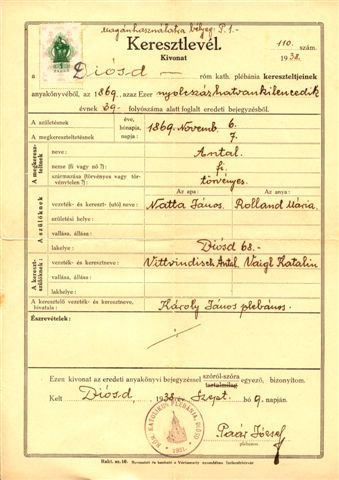 Magánhasználatra bélyeg: P. 1.-
Keresztlevél.
Kivonat
110. szám.
1938.
a Diósd — róm kath. plébánia kereszteltjeinek
anyakönyvéből, az 1869, azaz Ezer nyolcszázhatvankilencedik
évnek 69- folyószáma alatt foglalt eredeti bejegyzésből.
A születésnek éve, hónapja, napja: 1869. Novemb. 6.
A megkereszteltetésnek 7.
A megkereszteltnek
neve: Antal.
neme (fi vagy nő?): fi.
származása (törvényes vagy törvénytelen?): törvényes.
Az apa: Az anya:
A szülőknek
vezeték- és kereszt- (utó) neve: Natta János. Rolland Mária.
vallása, állása:
lakelye: Diósd 68.-
A keresztszülőknek:
vezeték- és keresztneve: Vittvindisch Antal Vaigl Katalin
vallása, állása:
lakhelye:
A keresztelő vezeték- és keresztneve, hivatala: Károly János plébános.
Észrevételek:
Ezen kivonat az eredeti anyakönyvi bejegyzéssel szóról-szóra tartalmilag egyező, bizonyítom.
Kelt Diósd, 1938. Szept. hó 9. napján.
RÓM. KATOLIKUS PLÉBÁNIA DIÓSD
1931.
Paár József
plébános